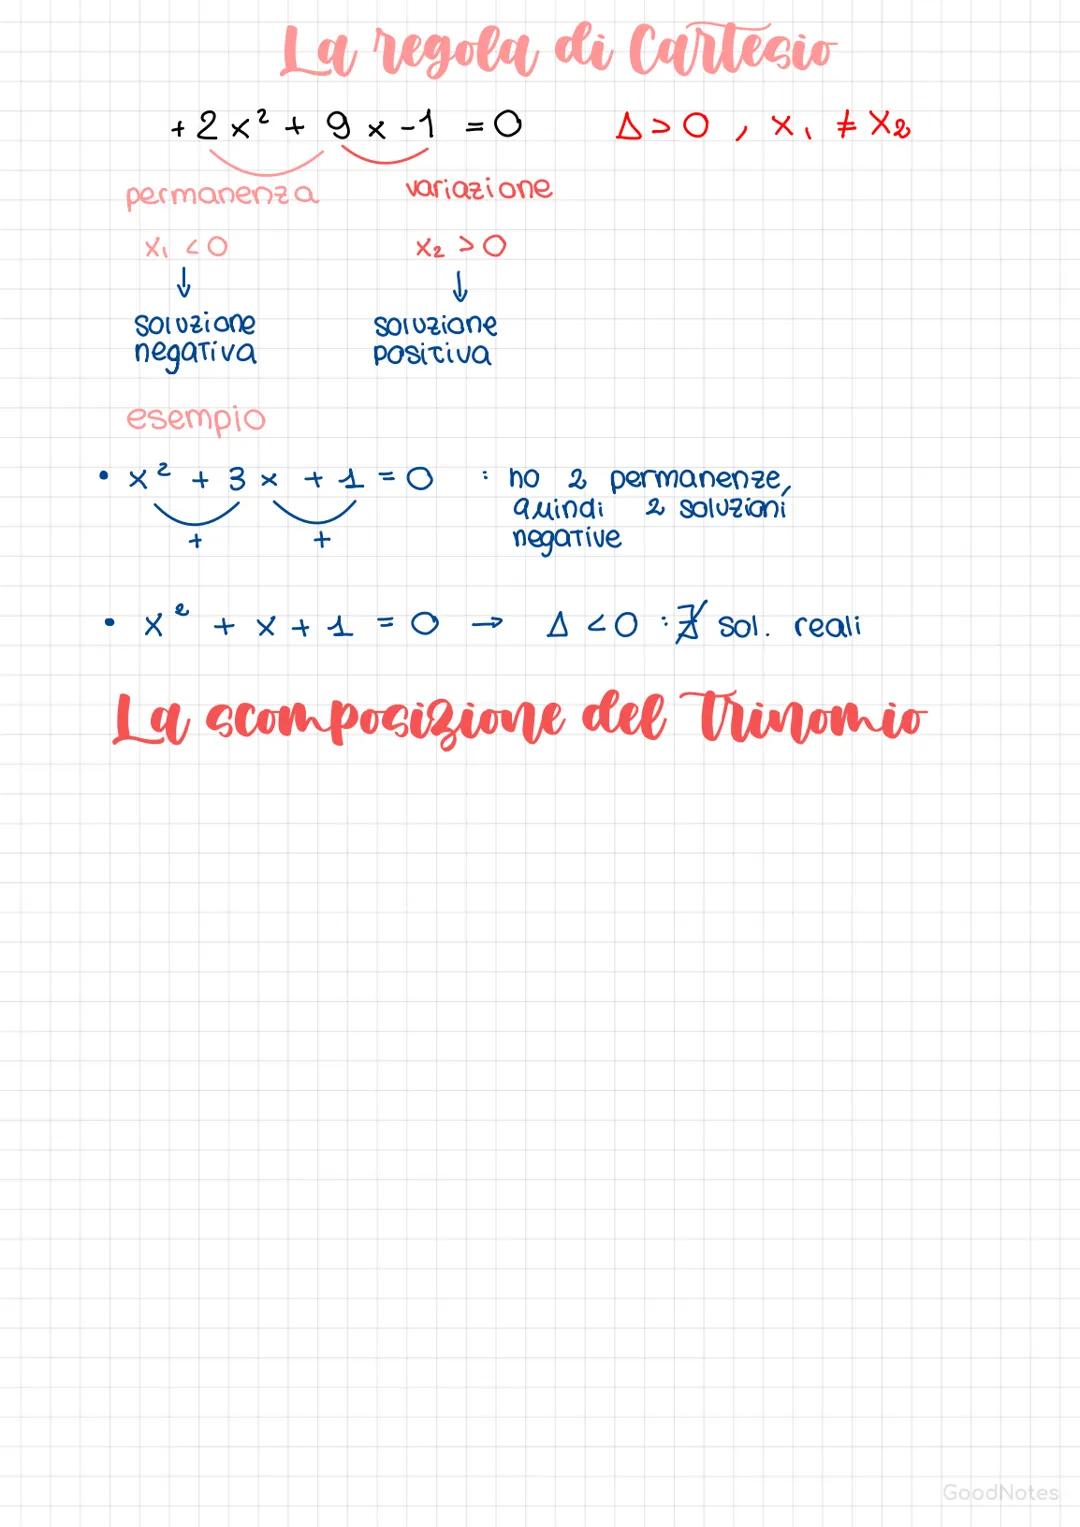 La regola di Cartesio
+2x² + 9x -1 = 0 Δ>0, x₁ ≠ x₂
permanenza variazione
x₁ <0 x₂ >0
↓ ↓
soluzione soluzione
negativa positiva
esempio
• x² + 3x + 1 = 0 : ho 2 permanenze,
+ + quindi 2 soluzioni
negative
• x² + x + 1 = 0 → Δ <0 : ∄ sol. reali
La scomposizione del trinomio
GoodNotes